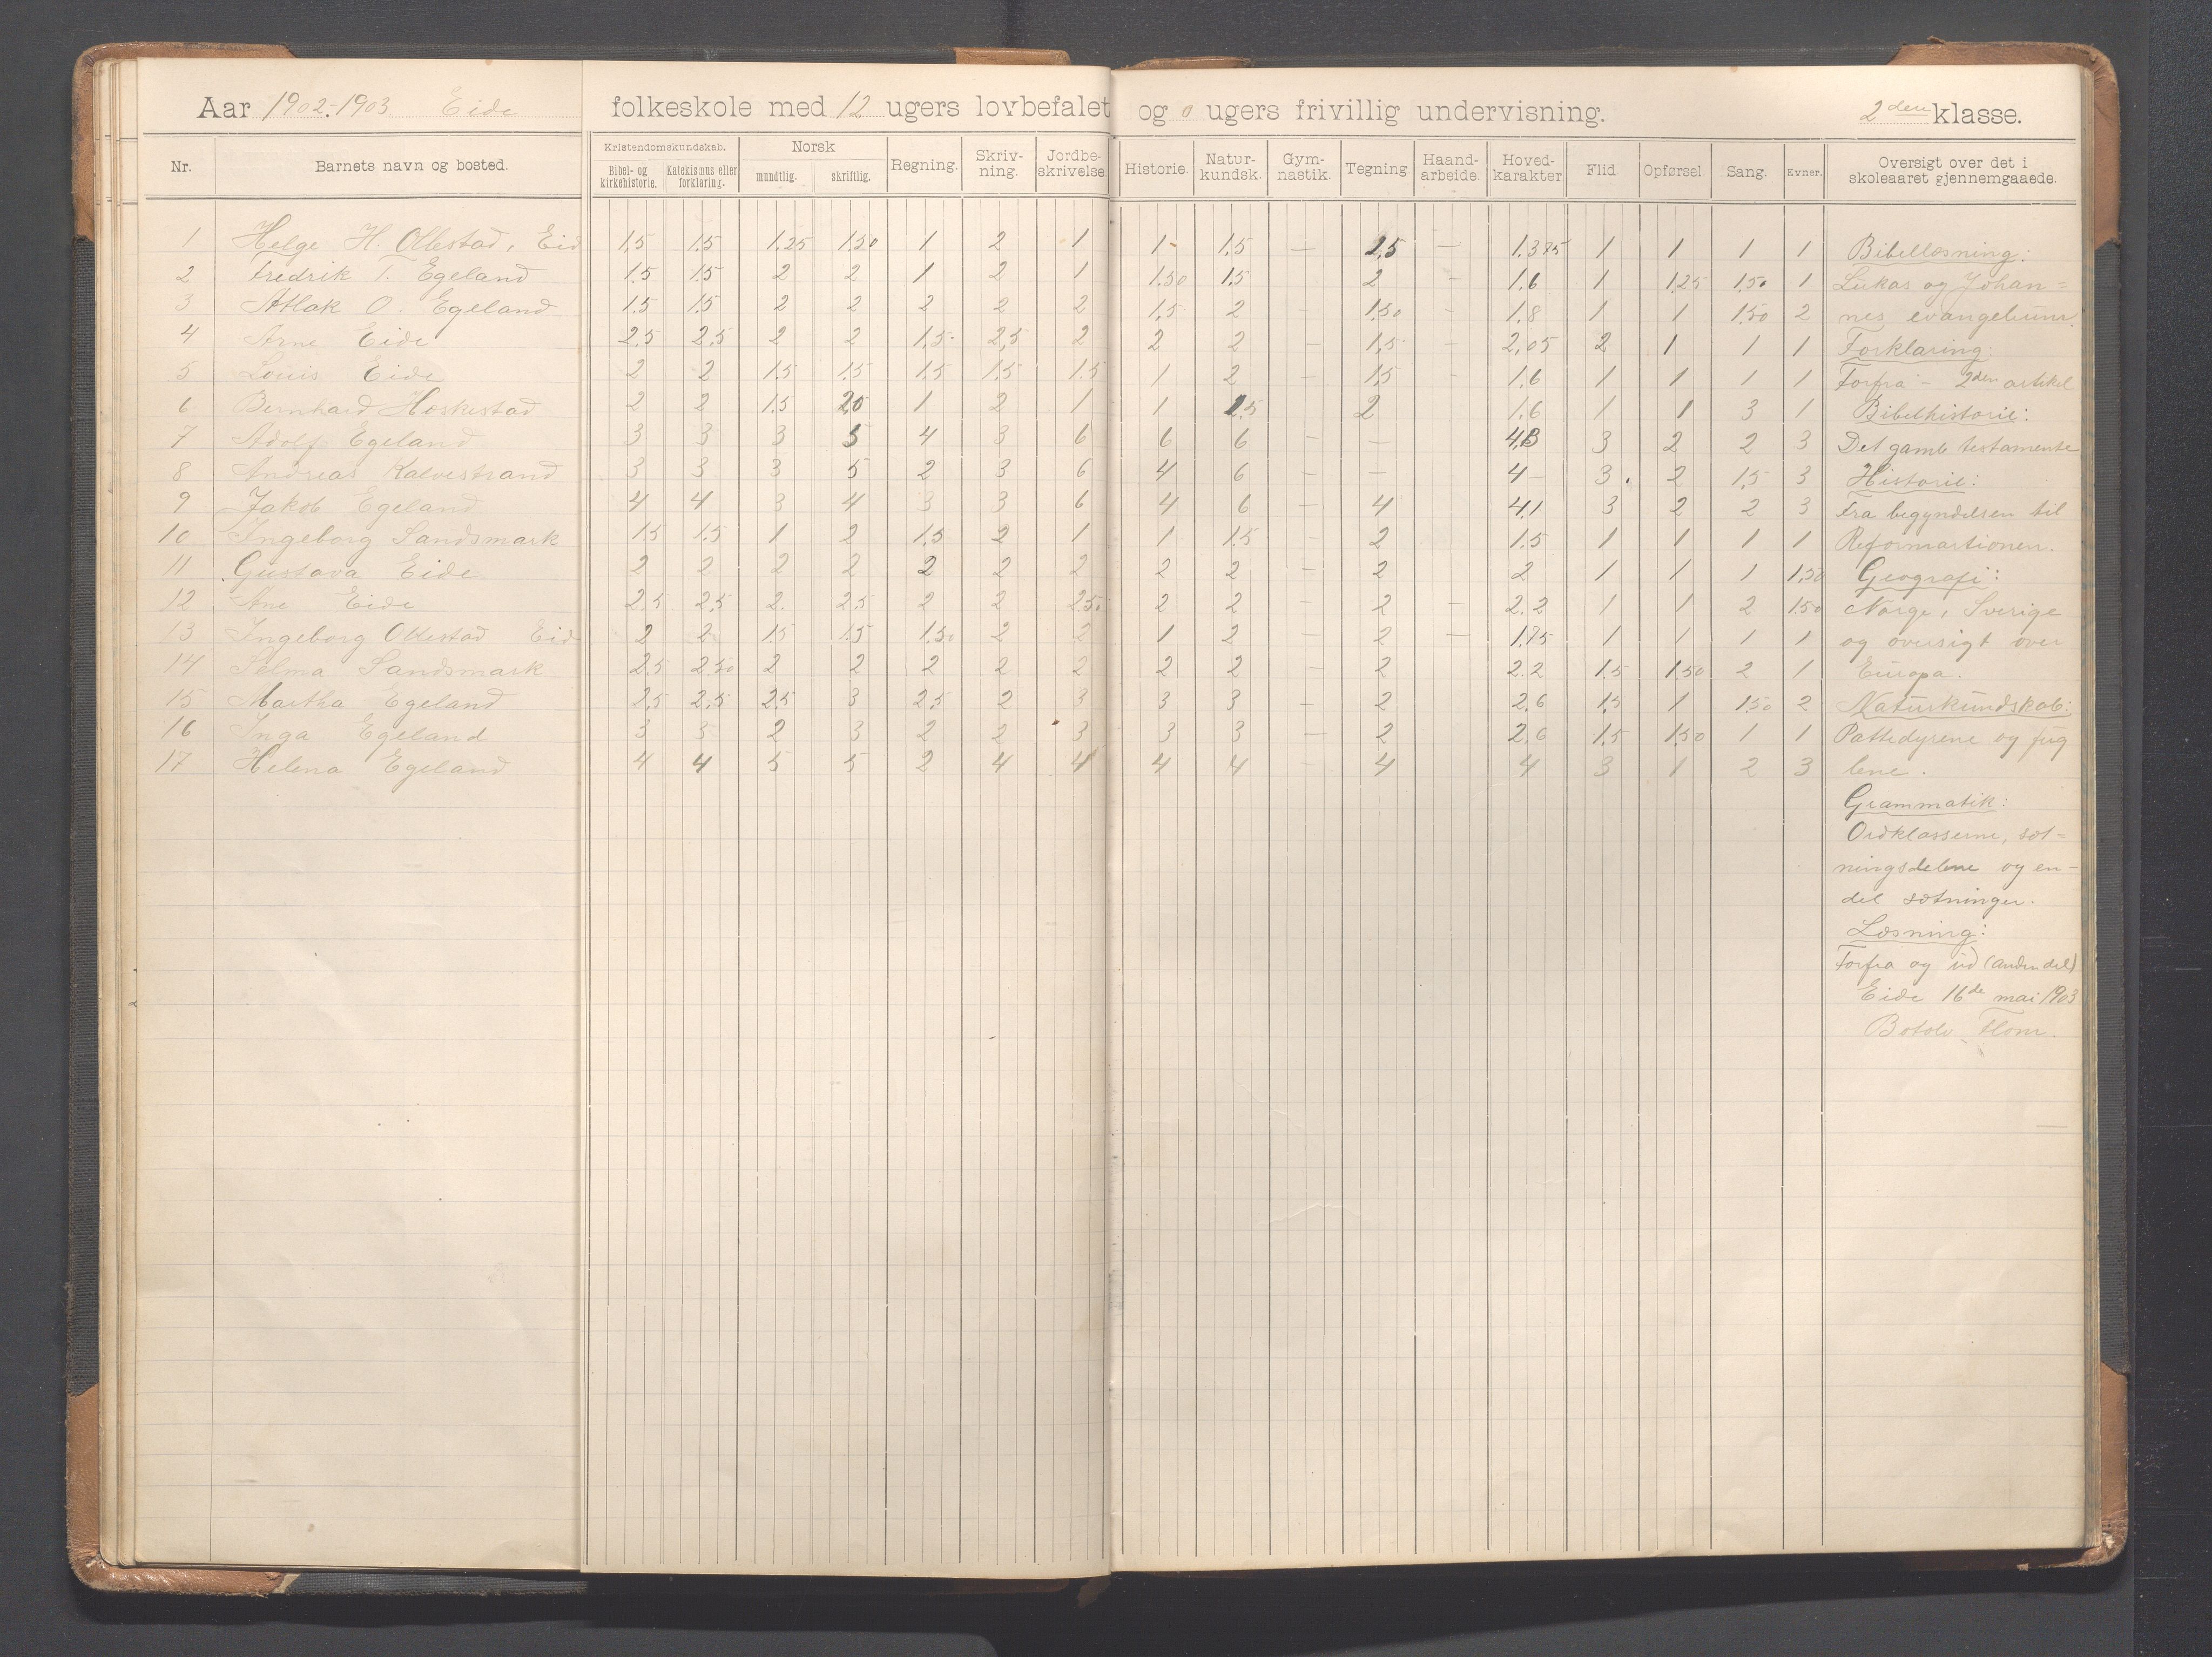 Aar 1902-1903 Eide folkeskole med 12 ugers lovbefalet og 0 ugers frivillig undervisning. 2den klasse.
Nr. Barnets navn og bosted. Kristendomskundskab. Bibel- og kirkehistorie. Katekismus eller forklaring. Norsk mundtlig. skriftlig. Regning. Skriv-ning. Jordbe-skrivelse Historie. Natur-kundsk. Gym-nastik. Tegning Haand-arbeide. Hoved-karakter Flid. Opførsel. Sang. Evner. Oversigt over det i skoleaaret gjennemgaaede.
1 Helge H. Ollestad, Eid 1,5 1,5 1,25 1,50 1 2 1 1 1,5 — 2,5 — 1,375 1 1 1 1 Bibellæsning:
2 Fredrik T. Egeland 1,5 1,5 2 2 1 2 1 1,50 1,5 2 - 1,6 1 1,25 1,50 1 Lukas og Johan=
3 Atlak O. Egeland 1,5 1,5 2 2 2 2 2 1,5 2 - 1,50 - 1,8 1 1 1,50 2 nes evangelium.
4 Arne Eide 2,5 2,5 2 2 1,5 2,5 2 2 2 - 1,5 - 2,05 2 1 1 1 Forklaring:
5 Louis Eide 2 2 1,5 1,5 1,5 1,5 1,5 1 2 - 1,5 - 1,6 1 1 1 1 Forfra - 2den artikel
6 Bernhard Hæskestad 2 2 1,5 2,0 1 2 1 1 1,5 2 1,6 1 1 3 1 Bibelhistorie:
7 Adolf Egeland 3 3 3 5 4 3 6 6 6 - — 4,3 3 2 2 3 Det gamle testamente
8 Andreas Kalvestrand 3 3 3 5 2 3 6 4 6 - - 4 3 2 1,5 3 Historie:
9 Jakob Egeland 4 4 3 4 3 3 6 4 6 - 4 4,1 3 2 2 3 Fra begyndelsen til
10 Ingeborg Sandsmark 1,5 1,5 1 2 1,5 2 1 1 1,5 - 2 1,5 1 1 1 1 Reformartionen.
11 Gustava Eide 2 2 2 2 2 2 2 2 2 - 2 2 1 1 1 1,50 Geografi:
12 Ane Eide 2,5 2,5 2 2,5 2 2 2,50 2 2 - 2 — 2,2 1 1 2 1,50 Norge, Sverige
13 Ingeborg Ollestad Eid 2 2 1,5 1,5 1,50 2 2 1 2 - 2 — 1,75 1 1 1 1 og oversigt over
14 Selma Sandsmark 2,5 2,50 2 2 2 2 2 2 2 - 2 2,2 1,5 1,50 2 1 Europa.
15 Martha Egeland 2,5 2,5 2,5 3 2,5 2 3 3 3 - 2 2,6 1,5 1 1,50 2 Naturkundskab:
16 Inga Egeland 3 3 2 3 2 2 3 3 3 — 2 2,6 1,5 1,50 1 1 Pattedyrene og fug
17 Helena Egeland 4 4 5 5 2 4 4 4 4 - 4 4 3 1 2 3 lene.
Grammatik:
Ordklasserne, sæt=
ningsdelene og en-
del sætninger.
Læsning:
Forfra og ud (anden del)
Eide 16de mai 1903
Botolv Flom.